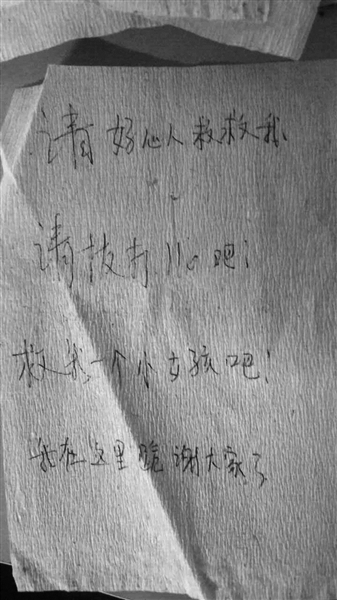 请好心人救救我
请拨打110吧！
救我一个小女孩吧！
我在这里跪谢大家了